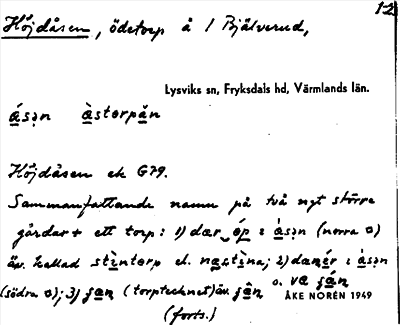 12
Höjdåsen, ödetorp å 1 Bjälverud,
Lysviks sn, Fryksdals hd, Värmlands län.
Höjdåsen ek G79.
Sammanfattande namn på två nygt större
gårdar + ett torp: 1) dær óp i ásən (norra o)
äv. kallad stìntorp el. 2) i ásən
(södra o); 3) (torptecknet) äv.
ÅKE NORÉN 1949
(forts.)